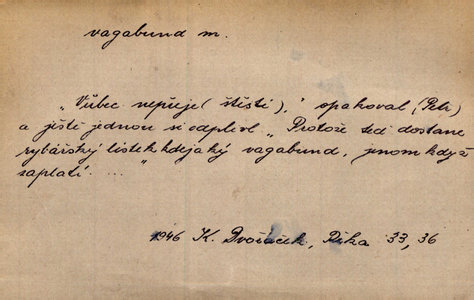 vagabund m.
„Vůbec nepřeje (štěstí),“ opakoval (Petr)
a ještě jednou si odplivl. „Protože teď dostane
rybářský lístek kdejaký vagabund, jenom když
zaplatí. ...“
1946 K. Dvořáček, Řeka 33, 36